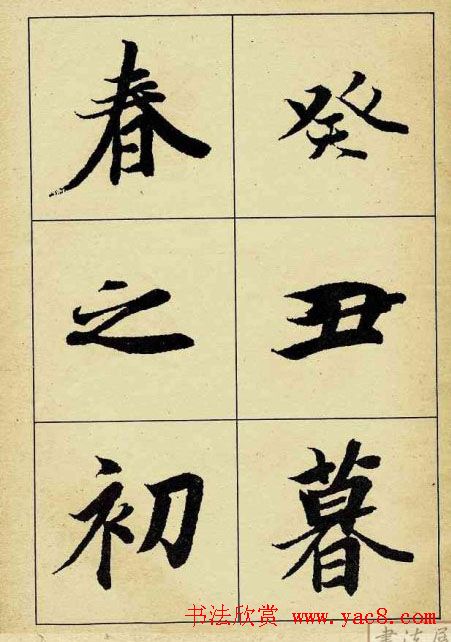 癸丑暮
春之初
书法欣赏 www.yac8.com
書法屋